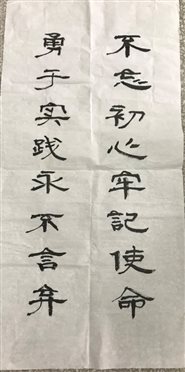 不忘初心牢記使命
勇于实践永不言弃